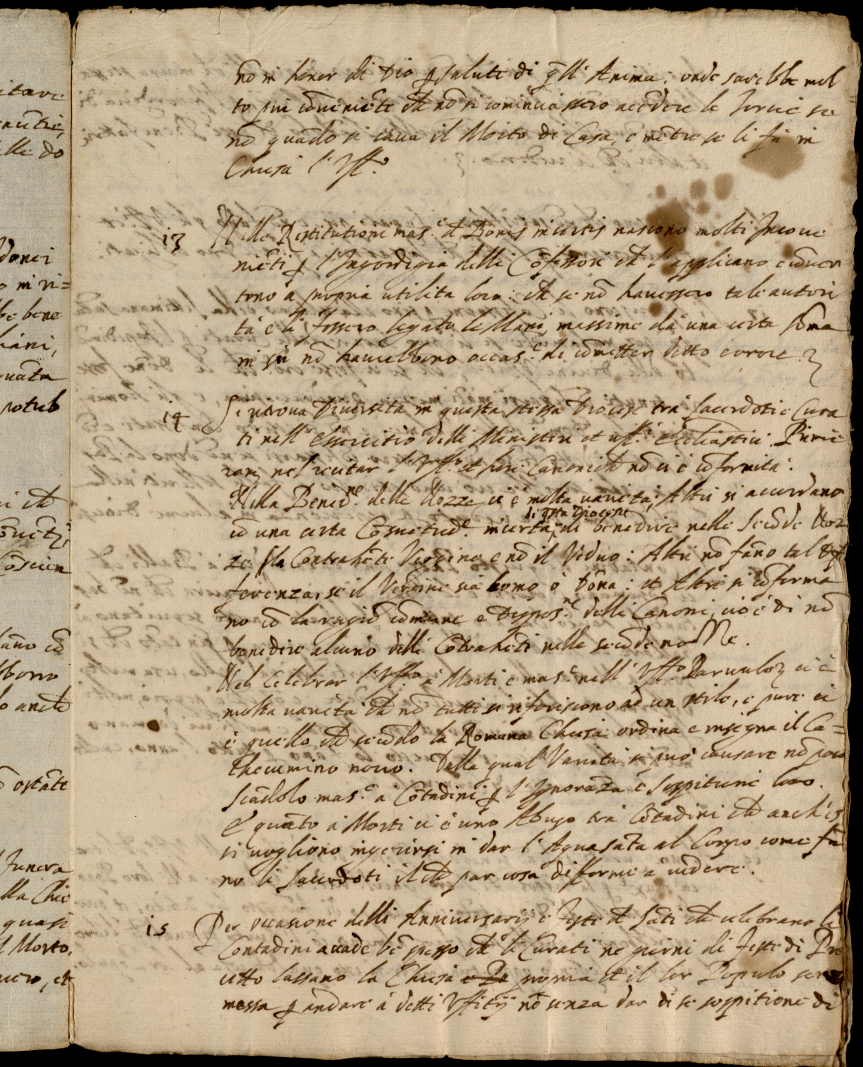 itare
lle do
donei
o in ri=
be bene
hiani,
quata
potub
ei ch
Coscien
lano co
o anch
ostate
Funera
lla Chie
quasi
l Morto,
no in honor di Dio p salute di qll' Anima: onde sarebbe mol
to piu conveniete ch no si cominciassero accedere le Torcie se
no quado si cava il Morto di Casa, e metre se li fà in
Chiesa l' Uff.º
13 Nelle Restitutioni mas.e d Bonis incertis nascono molti Incove
nieti p l' Ingordigia delli Cofessori ch l' applicano e conver
tono a propria utilita loro: ch se no havessero tale autori
tà e li fossero legate le Mani, massime da una certa soma
in sù no haverebbono occas.e di cometter detto errore.
14 Si truova Diversità in questa stessa Diocese trà Sacerdoti e Cura
ti nell' essercitio delli Ministerii et uff.i Ecclesiastici.
nel recitar l' Uff.o et hore Canonich no ci è coformità.
Nella Bened.ne delle Nozze ci è molta varietà; Altri si accordano
di qsta Diocese
co una certa Cosuetud.e incerta, di benedire nelle Secode Noz
ze sla Contrahete Vergine e no il Viduo: Altri no fano tal dif
ferenza, se il Vergine sia homo ò Dona: et Altri si coforma
no co la ragio comune e Dispos.ne delli Canoni, cioè di no
benedire alcuno delli Cotraheti nelle secode nozze.
Nel Celebrar l' Uffo a Morti e mas.e nell' Uff.o Parvuloz ci è
molta varietà ch no tutti si riferiscono ad un stilo, e pure ci
è quello ch secodo la Romana Chiesa ordina e insegna il Ca=
thecumino novo. Dalla qual Varietà si puo causare no poco
Scadolo mas.e a Cotadini p l' Ignoraza e Sospitioni loro.
E quato a Morti ci è uno Abuso tra Cotadini ch anch' essi
si vogliono ingerirsi in dar l' Aqua sata al Corpo come fa
no li Sacerdoti ilch par cosa difforme à videre.
15 Per occasione delli Anniversarij e Feste d Sati ch celebrano le
Contadini accade be spesso ch li Curati ne giorni di Feste di Pre
cetto lassano la Chiesa propria et il lor Populo senza
messa p andare à detti Uffitij no senza dar di se sospitione di